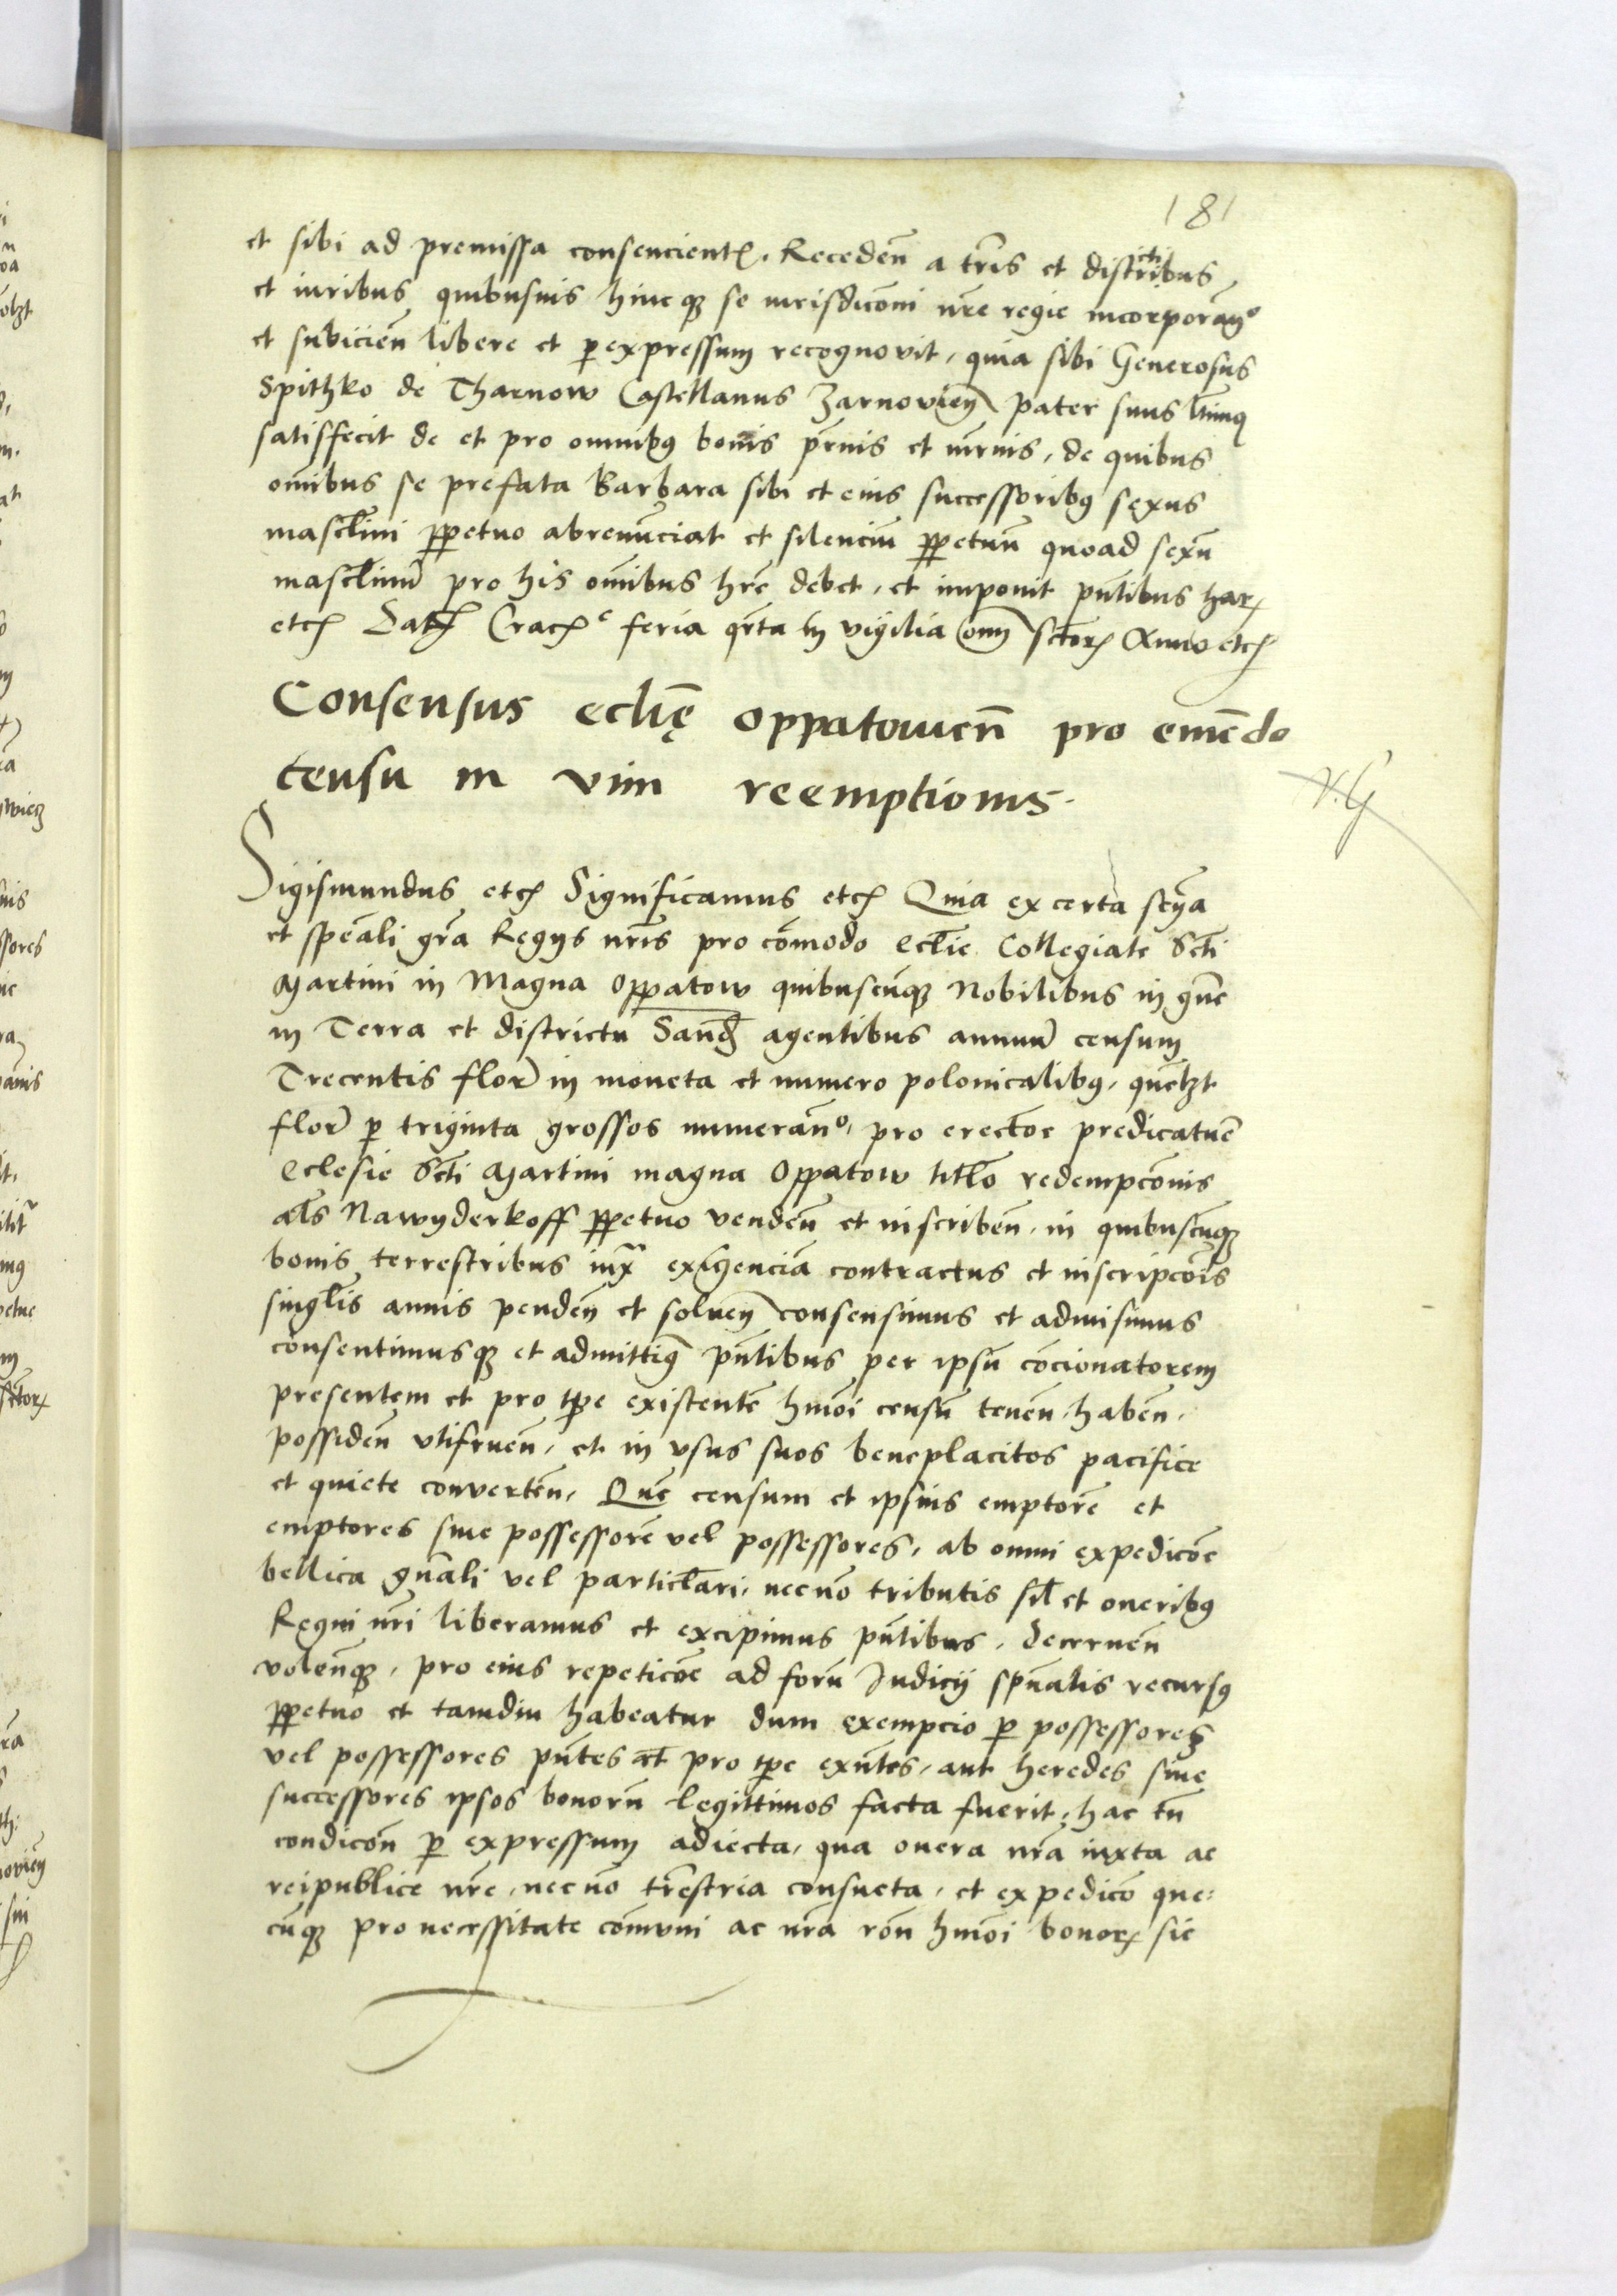 181
et sibi ad premissa consencient, Recedeñ a tr̃is et districtibus
et iuribus quibusuis hincq3 se iurisdicõni nr̃e regie incorporãn
et subiicieñ libere et p expressum recognovit, quia sibi Generosus
Spithko de Tharnow Castellanus Zarnovieñ pater suus
satisfecit de et pro omnibus bonis p̃rnis et m̃rnis, de quibus
om̃ibus se prefata Barbara sibi et eius successoribus sexus
mascl̃ini ppetuo abrenũciat et silenciũ ppetuũ quoad sexũ
mascl̃inũ pro his om̃ibus hr̃e debet, et imponit pñtibus har
etc Dat Crac feria qr̃ta in vigilia om̃ sctor Anno etc
Consensus ecl̃ię Oppatouien̄ pro emẽdo
censu in vim reemptionis.
N.G
Sigismundus etc Significamus etc Quia ex certa scĩa
et spẽali gr̃a Regijs nr̃is pro cõmodo Ecl̃ie Collegiate Sc̃ti
Martini in Magna Oppatow quibuscũq3 Nobilibus in gñe
in Terra et districtu Sand̃ agentibus annuũ censum
Trecentis flor̃ in moneta et numero polonicalibus, quẽlzt
flor̃ p triginta grossos numerãn, pro erectõe predicatur̃e
Eclesie Sc̃ti Martini magna Oppatow titl̃o redempcõnis
al̃s Nawyderkoff ppetuo vendeñ et inscribeñ, in quibuscũq3
bonis terrestribus iux̃ exigenciã contractus et inscripcõis
singl̃is annis pendeñ et solueñ consensimus et admisimus
consentimusq3 et admittim9 pñtibus per ipsũ cõcionatorem
presentem et pro tp̃e existentẽ hm̃oi censũ teneñ, habeñ,
possideñ vtifrueñ, et in vsus suos beneplacitos pacifice
et quiete converteñ, Quẽ censum et ipsius emptorẽ et
emptores siue possessorẽ vel possessores, ab omni expedicõe
bellica gñali vel particl̃ari, necnõ tributis sil̃ et oneribus
Regni nr̃i liberamus et excipimus pñtibus, decerneñ
volẽñq3, pro eius repeticõe ad forũ Iudicij spũalis recursus
ppetuo et tamdiu habeatur dum exempcio p possessores
vel possessores pñtes et pro tp̃e exñtes, aut heredes siue
successores ipsos bonorũ legittimos facta fuerit, hac tñ
condicõn p expressum adiecta, qua onera nr̃a iuxta ac
reipublice nr̃e, necnõ tr̃estria consueta, et expedicõ que=
cũq3 pro necessitate cõmuni ac nr̃a rõn hm̃oi bonor sic